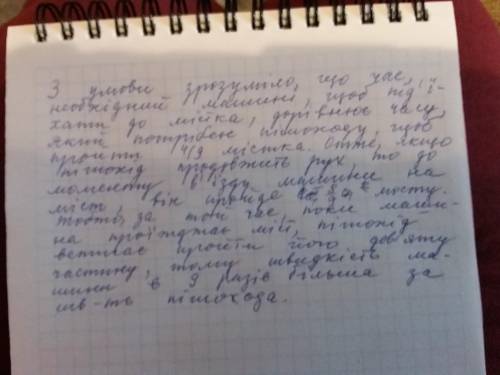 З умови зрозуміло, що час,
необхідний машині, щоб під'ї-
хати до містка, дорівнює часу,
який потрібен пішоходу, щоб
пройти 4/9 містка. Отже, якщо
пішохід продовжить рух, то до
моменту в'їзду машини на
міст, він пройде мосту.
тобто, за той час, поки маши-
на проїжджає міст, пішохід
встигає пройти його дев'яту
частину, тому швидкість ма-
шини в 9 разів більша за
шв-ть пішохода.